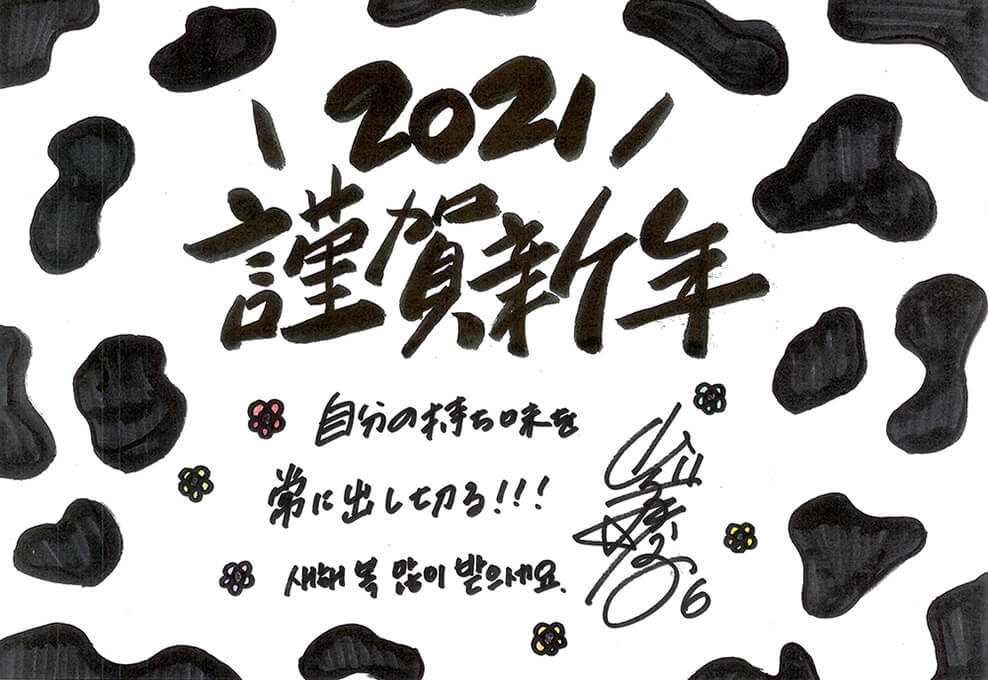 2021
謹賀新年
自分の持ち味を
常に出し切る!!!
새해 복 많이 받으세요.
6